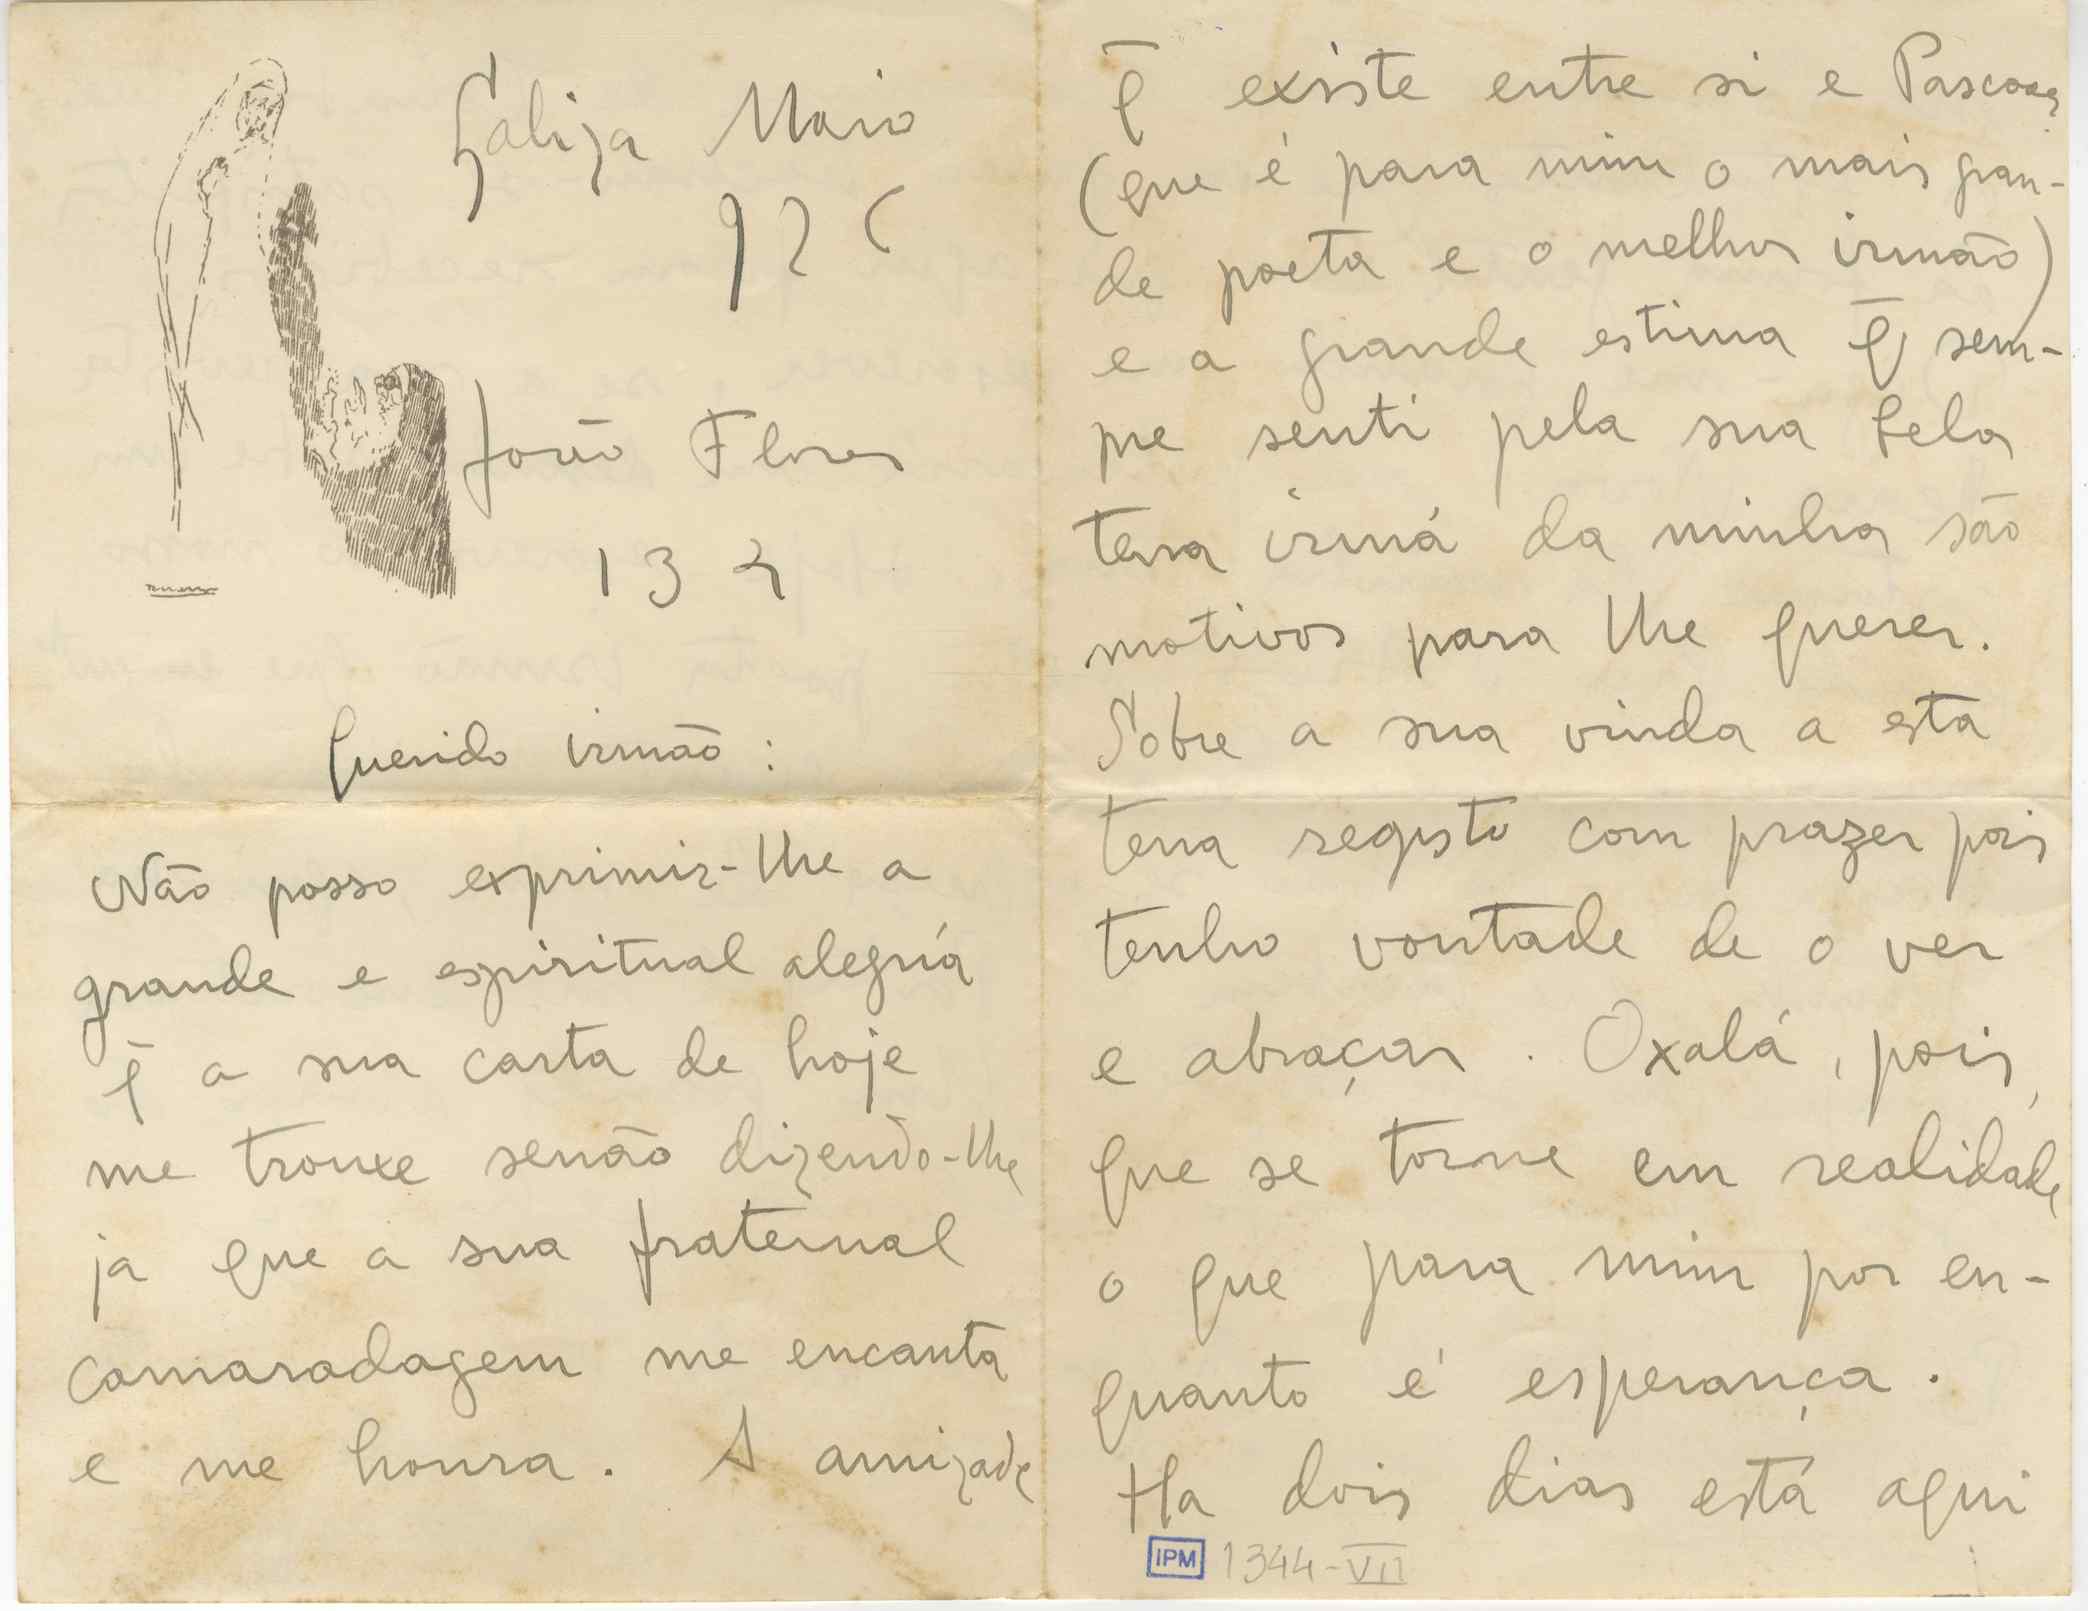 Galiza Maio
926
João Flores
134
Querido irmão :
Não posso exprimir-lhe a
grande e espiritual alegría
q̄ a sua carta de hoje
me trouxe senão dizendo-lhe
ja que a sua fraternal
camaradagem me encanta
e me honra. A amizade
q̄ existe entre si e Pascoaes
(que é para mim o mais gran-
de poeta e o melhor irmão)
e a grande estima q̄ sem-
pre senti pela sua bela
terra irmá da minha são
motivos para lhe querer.
Sobre a sua vinda a esta
terra registo com prazer pois
tenho vontade de o ver
e abraçar. Oxalá, pois,
que se torne em realidade
o que para mim por en-
quanto é esperança.
Ha dois dias está aqui
IPM 1344-VII